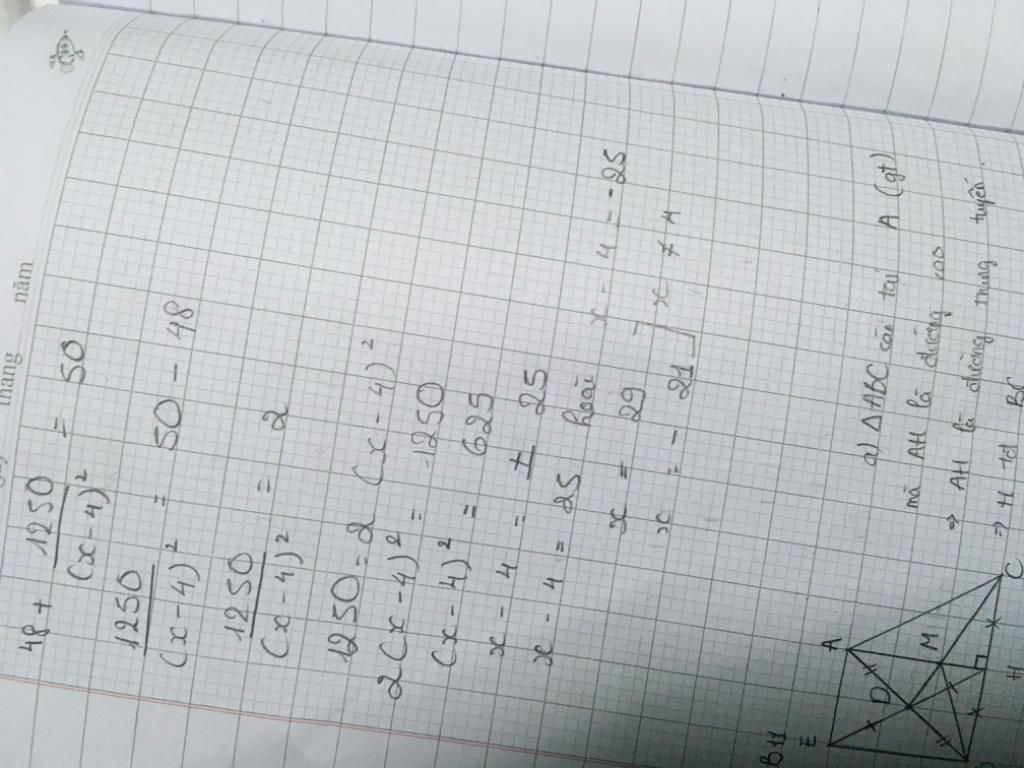 tháng năm
48 + 1250/(x-4)² = 50
1250/(x-4)² = 50 - 48
1250/(x-4)² = 2
1250 = 2 (x-4)²
2(x-4)² = 1250
(x-4)² = 625
x - 4 = ± 25
x - 4 = 25 hoặc x - 4 = -25
x = 29
x = -21] x ≠ 4
B11
E A
D M
H C
a) ΔABC cân tại A (gt)
mà AH là đường cao
⇒ AH là đường trung tuyến
⇒ H tđ BC